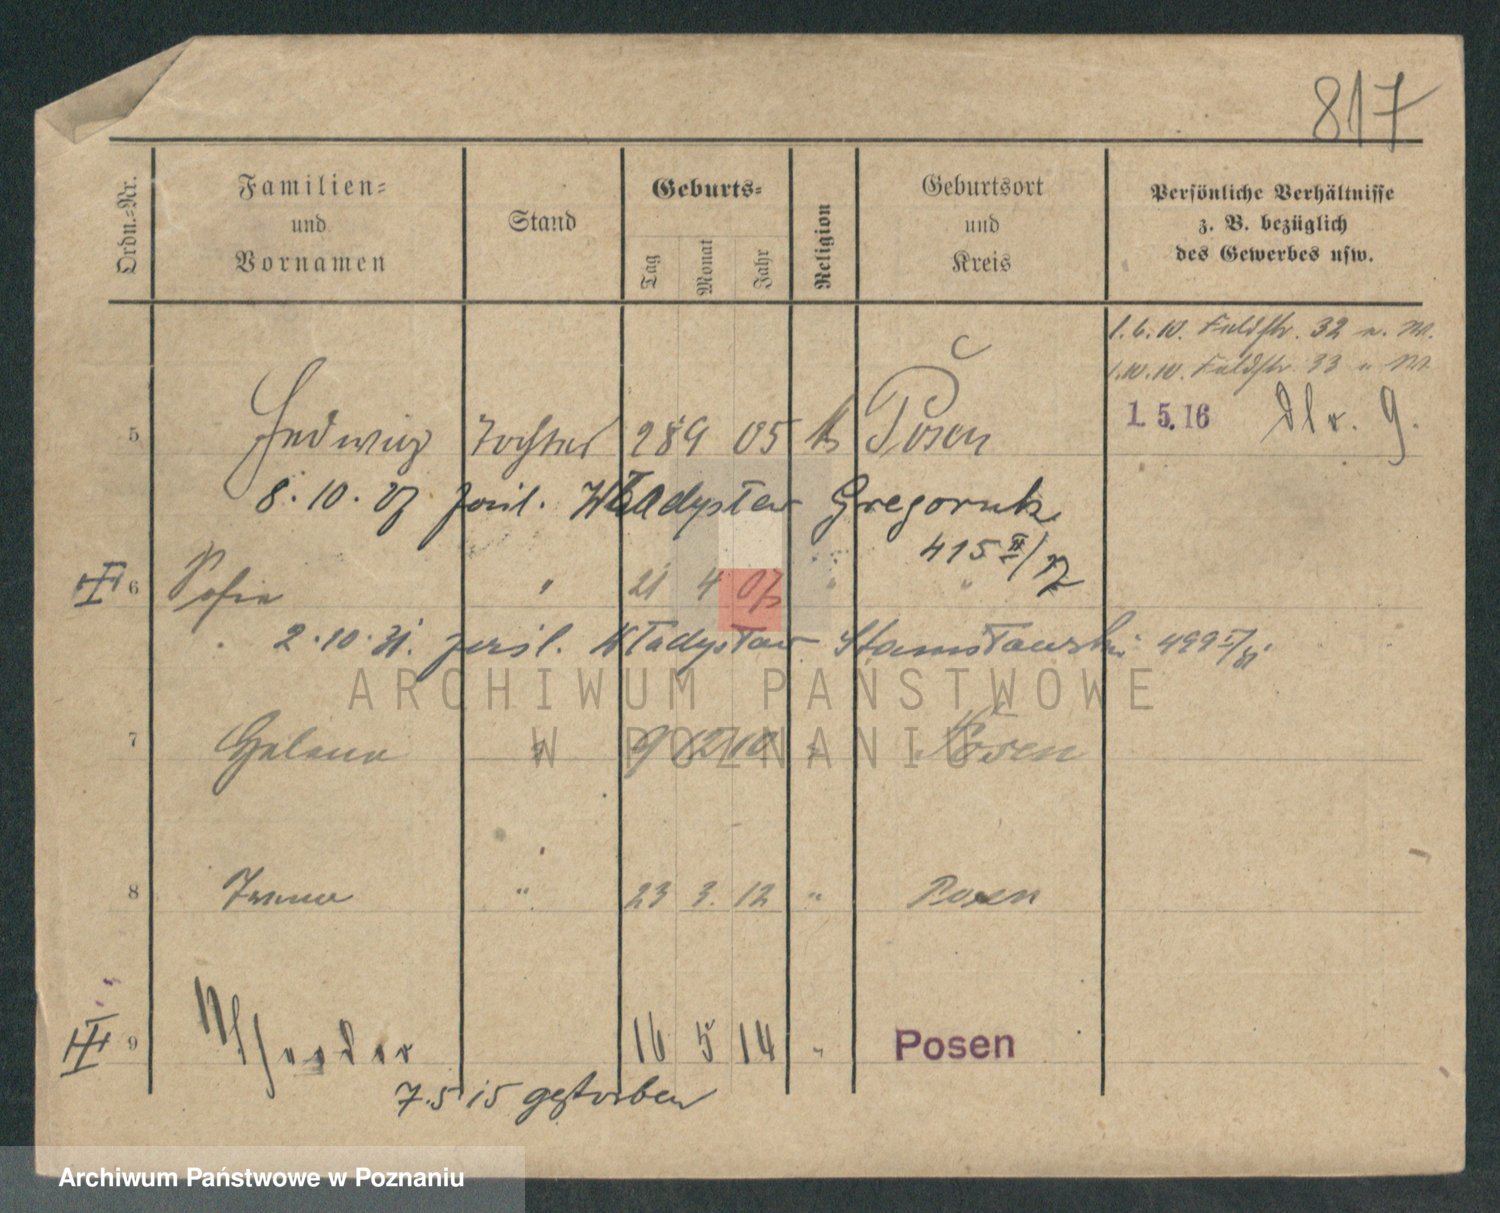 817
Ordn.=Nr.
Familien=
und
Vornamen
Stand
Geburts=
Tag
Monat
Jahr
Religion
Geburtsort
und
Kreis
Persönliche Verhältnisse
z. B. bezüglich
des Gewerbes usw.
1.6.10. Feldstr. 32 n. M.
1.10.10. Feldstr. 33 n M
1.5.16
5 Hedwig Tochter 28 9 05 k Posen
8.10.27 Władysław Gregoruk
415 II/
6 Sofie " 21 4 07 " "
2.10.31. Władysław Stanisławski 499 I/
ARCHIWUM PAŃSTWOWE
W POZNANIU
7 Helena " 9 12 10 " Posen
8 Irena " 23 3. 12 " Posen
9 16 5 14 " Posen
7.5 15 gestorben
Archiwum Państwowe w Poznaniu